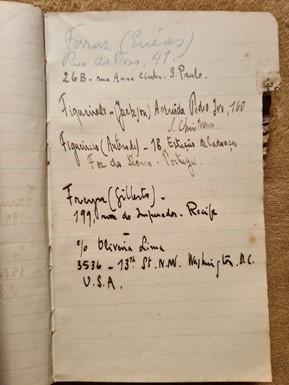 Ferraz (Enéas)
Rua do Poso, 41.
26B - rua Anna Cintra. S. Paulo.
Figueiredo - (Jackson) Avenida Pedro Ivo, 160
S. Christovão.
Figueiredo (Antero de) - 18, Estação de
Foz do Douro - Portugal.
Freyre (Gilberto) -
199, rua do Imperador - Recife
c/o Oliveira Lima
3536 - 13th St. N.W. Washington, D.C.
U.S.A.